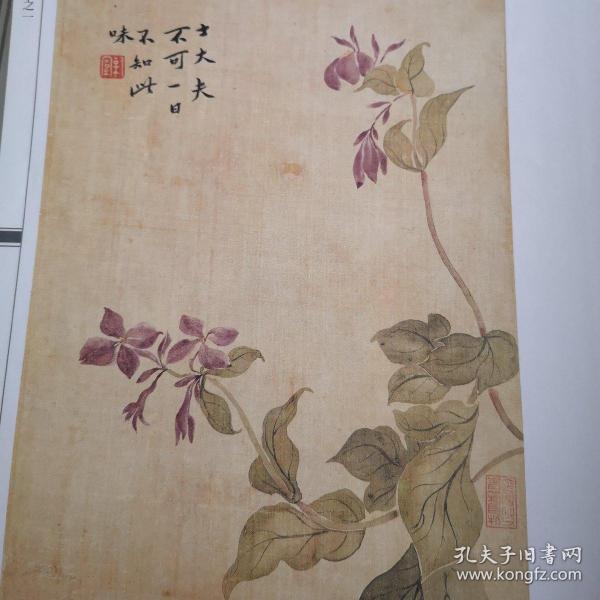 士大夫
不可一日
不知此
味
之一
孔夫子旧书网
www.kongfz.com